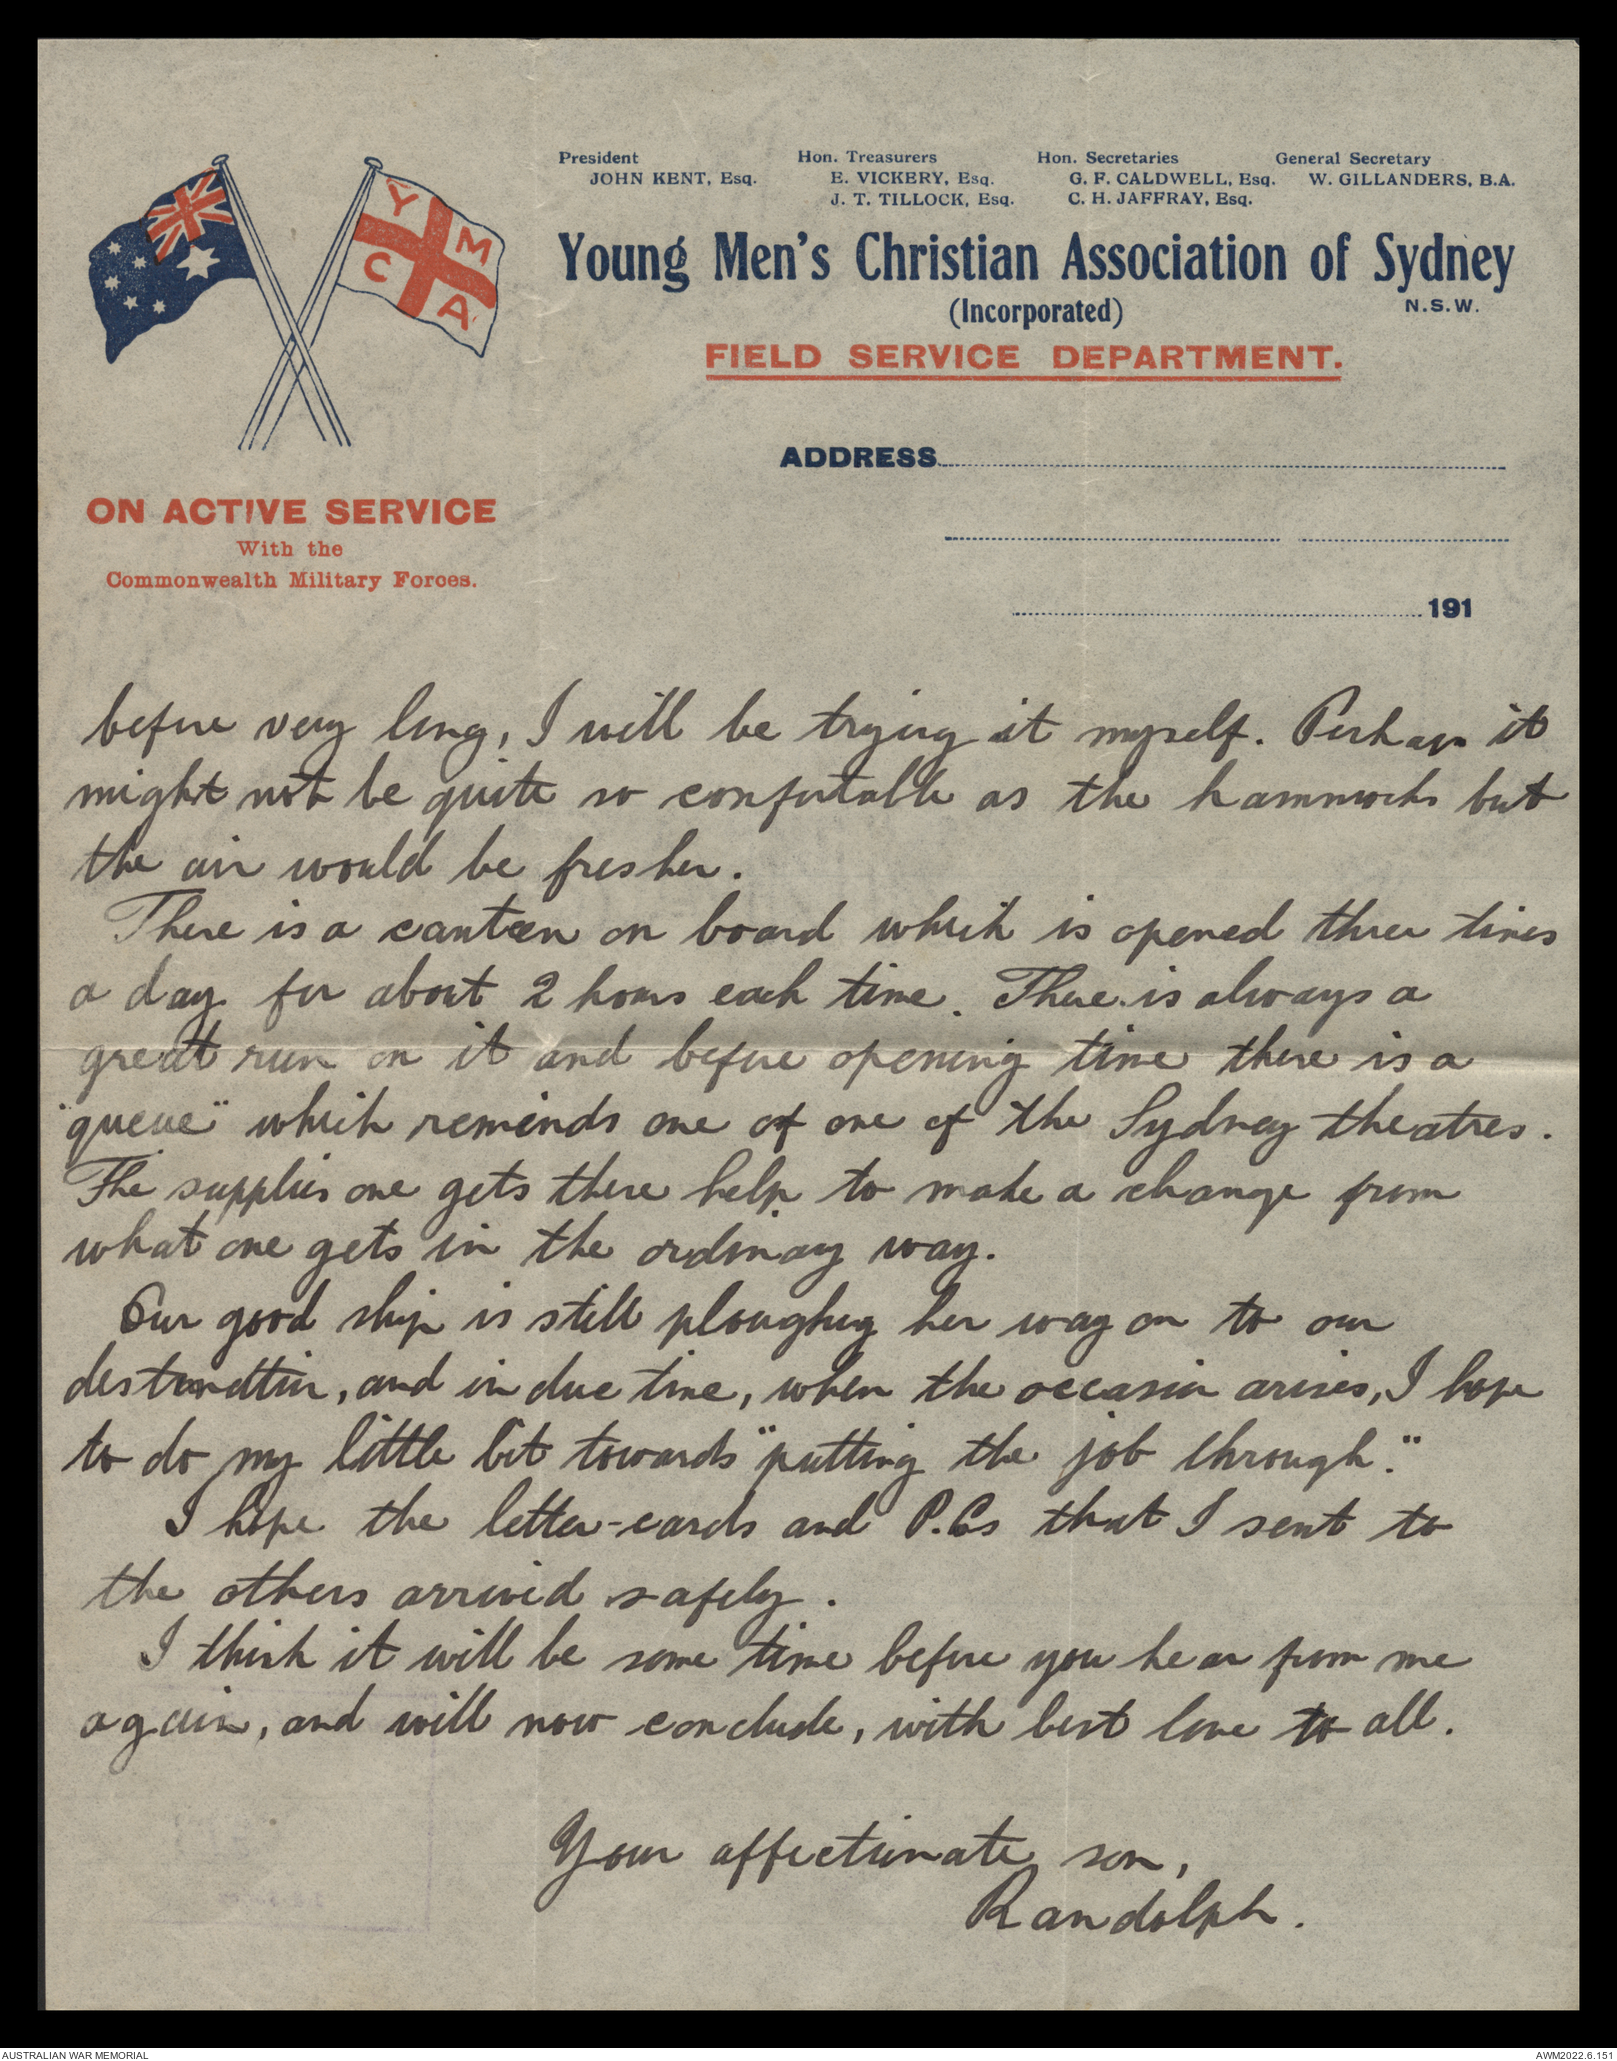 President
JOHN KENT, Esq.
Hon. Treasurers
E. VICKERY, Esq.
J. T. TILLOCK, Esq.
Hon. Secretaries
G. F. CALDWELL, Esq.
C. H. JAFFRAY, Esq.
General Secretary
W. GILLANDERS, B.A.
Y M C A
Young Men's Christian Association of Sydney
(Incorporated) N.S.W.
FIELD SERVICE DEPARTMENT.
ADDRESS
ON ACTIVE SERVICE
With the
Commonwealth Military Forces.
191
before very long, I will be trying it myself. Perhaps it
might not be quite so comfortable as the hammocks but
the air would be fresher.
There is a canteen on board which is opened three times
a day for about 2 hours each time. There is always a
great run on it and before opening time there is a
"queue" which reminds one of one of the Sydney theatres.
The supplies one gets there help to make a change from
what one gets in the ordinary way.
Our good ship is still ploughing her way on to our
destination, and in due time, when the occasion arises, I hope
to do my little bit towards "putting the job through".
I hope the letter-cards and P.Cs that I sent to
the others arrived safely.
I think it will be some time before you hear from me
again, and will now conclude, with best love to all.
Your affectionate son,
Randolph.
AUSTRALIAN WAR MEMORIAL
AWM2022.6.151